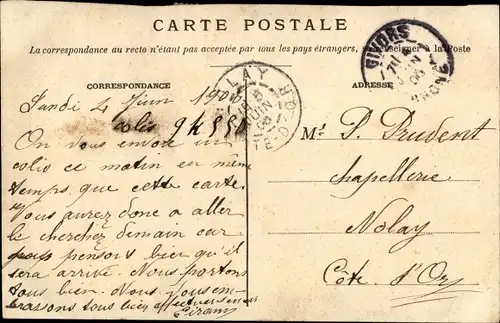 CARTE POSTALE
La correspondance au recto n'étant pas acceptée par tous les pays étrangers, se renseigner à la Poste
CORRESPONDANCE
ADRESSE
NOLAY
JUIN
COTE D'OR
GIVORS
JUIN
06
RHONE
Lundi 4 Juin 1906
colis
On vous envoie un
colis ce matin en même
temps que cette carte.
Vous aurez donc a aller
le cherchez demain car
pensons bien qu'il
sera arrivé. Nous portons
tous bien. Nous vous em-
brassons tous bien affectueusement
Mr P. Prudent
Chapellerie
Nolay
Côte d'Or